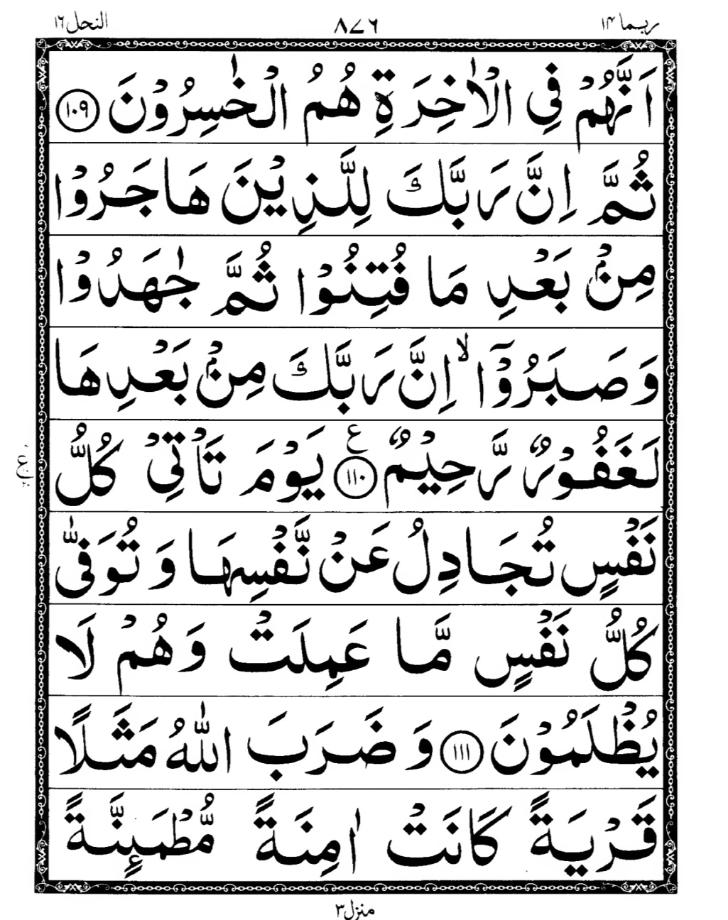 ربما ۱۴ ۸۷۶ النحل ۱۶
اَنَّهُمْ فِی الْاٰخِرَةِ هُمُ الْخٰسِرُوْنَ ﴿۱۰۹﴾
ثُمَّ اِنَّ رَبَّكَ لِلَّذِیْنَ هَاجَرُوْا
مِنْۢ بَعْدِ مَا فُتِنُوْا ثُمَّ جٰهَدُوْا
وَصَبَرُوْۤا ۙ اِنَّ رَبَّكَ مِنْۢ بَعْدِهَا
لَغَفُوْرٌ رَّحِیْمٌ ﴿۱۱۰﴾ ع یَوْمَ تَاْتِیْ كُلُّ
نَفْسٍ تُجَادِلُ عَنْ نَّفْسِهَا وَتُوَفّٰی
كُلُّ نَفْسٍ مَّا عَمِلَتْ وَهُمْ لَا
یُظْلَمُوْنَ ﴿۱۱۱﴾ وَضَرَبَ اللّٰهُ مَثَلًا
قَرْیَةً كَانَتْ اٰمِنَةً مُّطْمَىِٕنَّةً
منزل ۳